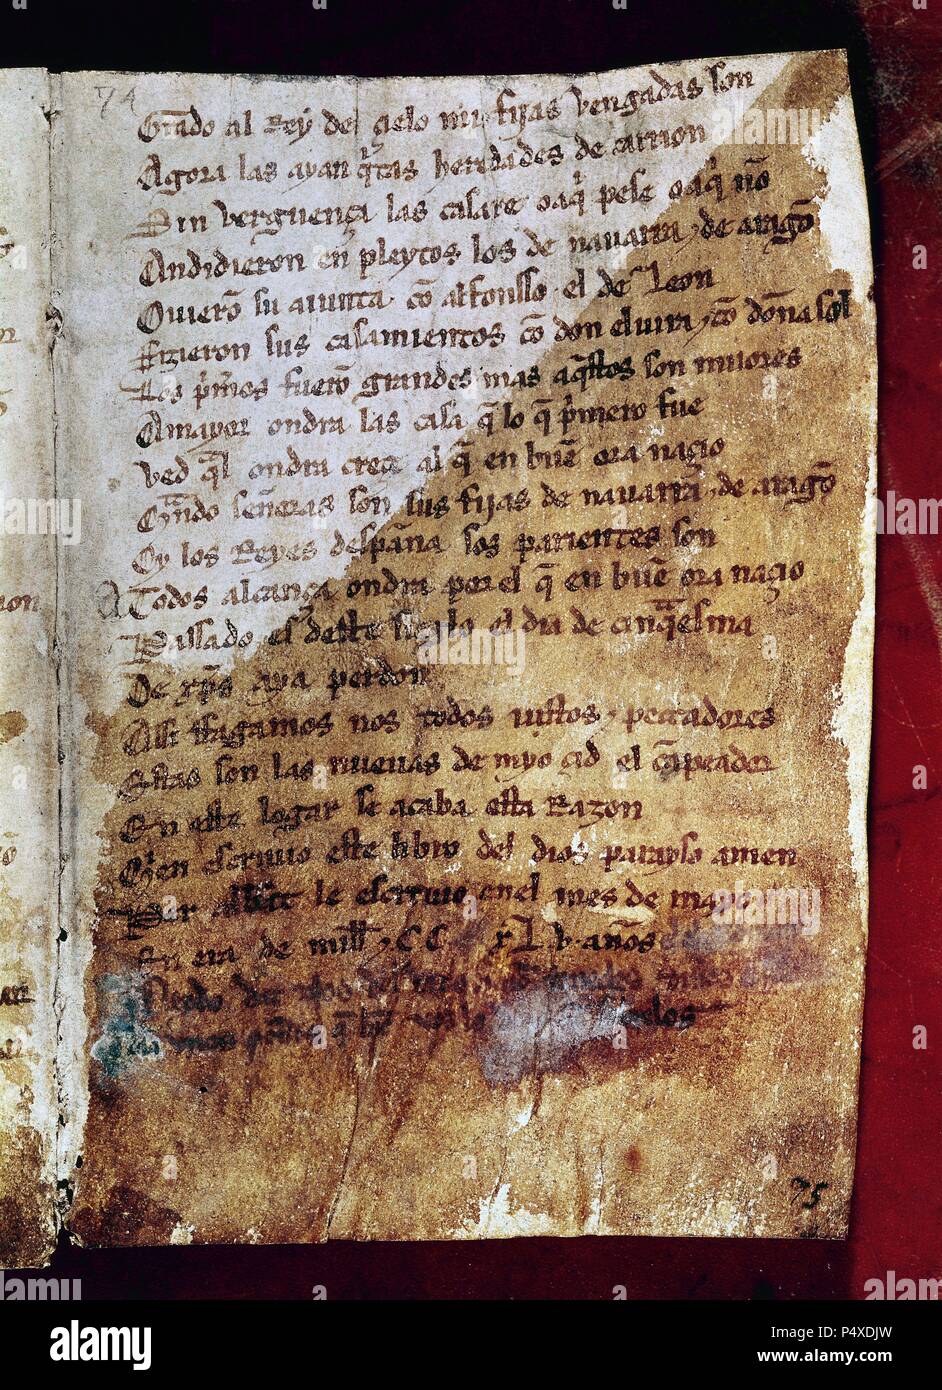 74
Grado al Rey del çielo mis fijas vengadas son
Agora las ayan q̃tas heredades de carrion
Sin verguença las casare o aq̃ pese o aq̃ nõ
Andidieron en pleytos los de nauarra ⁊ de aragõ
Ouierõ su aiunta cõ alfonsso el de Leon
Fizieron sus casamientos cõ don eluira ⁊ cõ doña sol
Los p̃meros fuerõ grandes mas aq̃stos son miiores
A mayor ondra las casa q̃ lo q̃ p̃mero fue
Ved q̃l ondra creçe al q̃ en buẽ ora naçio
Qñdo señoras son sus fijas de nauarra ⁊ de aragõ
Oy los Reyes despaña sos parientes son
A Todos alcança ondra por el q̃ en buẽ ora naçio
Passado es deste sieglo el dia de cinq̃esma
De xp̃s aya perdon
Assi ffagamos nos todos iustos ⁊ peccadores
Estas son las nueuas de myo çid el cãpeador
En este logar se acaba esta Razon
Q̃en escriuio este libro del dios parayso amen
Per abbat le escriuio enel mes de mayo
En era de mill ⁊ CC xL v años
75
alamy
P4XDJW
Image ID: P4XDJW
www.alamy.com